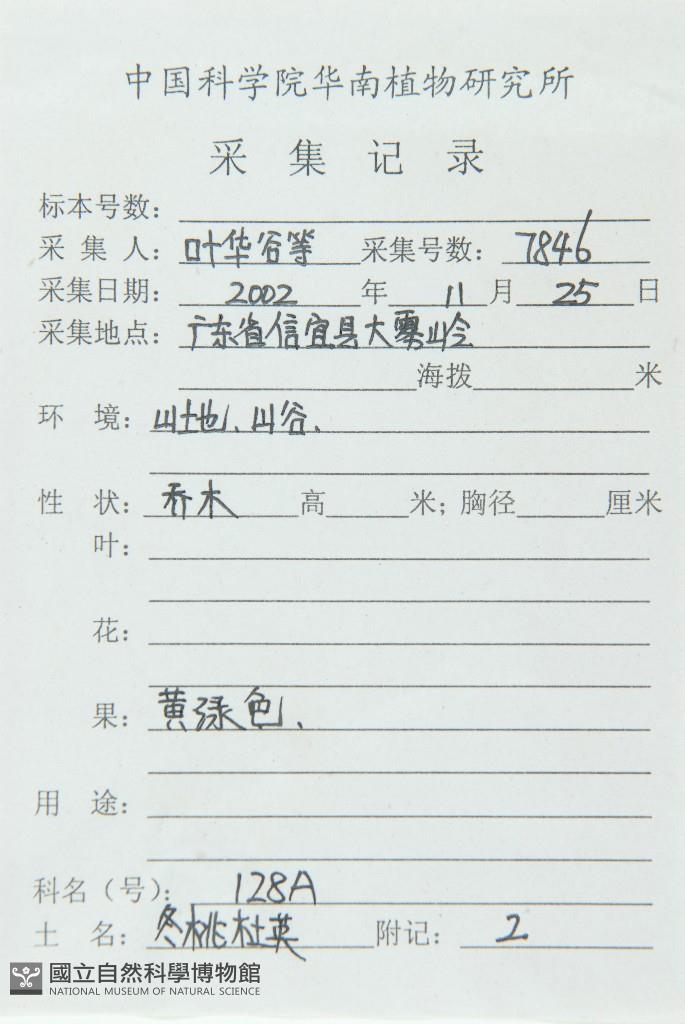 中国科学院华南植物研究所
采集记录
标本号数：
采集人：叶华谷等 采集号数：7846
采集日期：2002年11月25日
采集地点：广东省信宜县大雾岭
海拨 米
环境：山地、山谷、
性状：乔木 高 米；胸径 厘米
叶：
花：
果：黄绿色、
用途：
科名（号）：128A
土名：冬桃杜英 附记：2
國立自然科學博物館
NATIONAL MUSEUM OF NATURAL SCIENCE